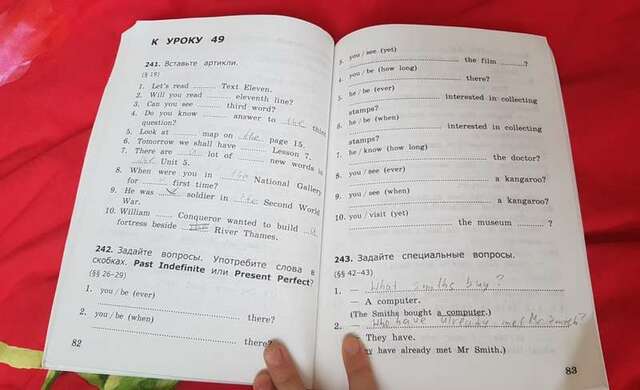 К УРОКУ 49
241. Вставьте артикли.
(§ 19)
1. Let's read ........ Text Eleven.
2. Will you read ........ eleventh line?
3. Can you see ........ third word?
4. Do you know ........ answer to the third
question?
5. Look at ........ map on the page 15.
6. Tomorrow we shall have ........ Lesson 7.
7. There are a lot of ........ new words in
Unit 5.
8. When were you in the National Gallery
for ........ first time?
9. He was a soldier in the Second World
War.
10. William ........ Conqueror wanted to build a
fortress beside the River Thames.
242. Задайте вопросы. Употребите слова в
скобках. Past Indefinite или Present Perfect?
(§§ 26–29)
1. you / be (ever)
........ there?
2. you / be (when)
........ there?
82
3. you / see (yet)
........ the film ........?
4. you / be (how long)
........ there?
5. he / be (ever)
........ interested in collecting
stamps?
6. he / be (when)
........ interested in collecting
stamps?
7. he / know (how long)
........ the doctor?
8. you / see (ever)
........ a kangaroo?
9. you / see (when)
........ a kangaroo?
10. you / visit (yet)
........ the museum ........?
243. Задайте специальные вопросы.
(§§ 42–43)
1. — What Smiths buy?
— A computer.
(The Smiths bought a computer.)
2. — Who have already met Mr Smith?
— They have.
have already met Mr Smith.)
83